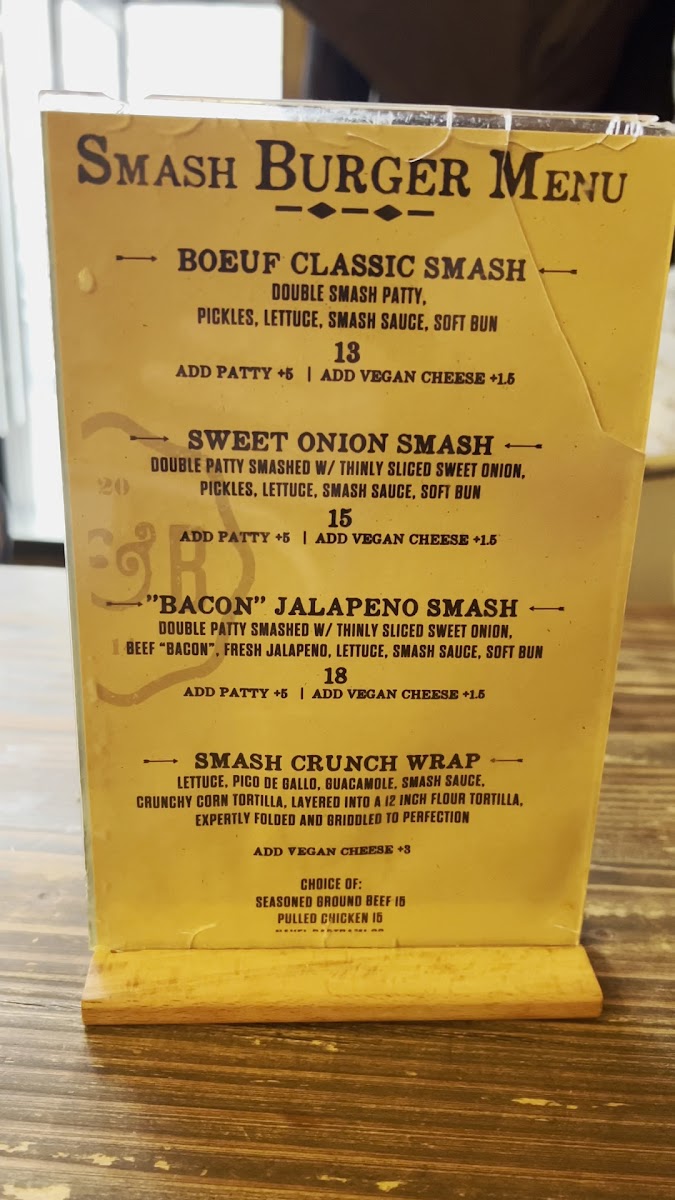 SMASH BURGER MENU
BOEUF CLASSIC SMASH
DOUBLE SMASH PATTY,
PICKLES, LETTUCE, SMASH SAUCE, SOFT BUN
13
ADD PATTY +5 | ADD VEGAN CHEESE +1.5
SWEET ONION SMASH
DOUBLE PATTY SMASHED W/ THINLY SLICED SWEET ONION,
PICKLES, LETTUCE, SMASH SAUCE, SOFT BUN
15
ADD PATTY +5 | ADD VEGAN CHEESE +1.5
20
& B
"BACON" JALAPENO SMASH
DOUBLE PATTY SMASHED W/ THINLY SLICED SWEET ONION,
BEEF "BACON", FRESH JALAPENO, LETTUCE, SMASH SAUCE, SOFT BUN
18
ADD PATTY +5 | ADD VEGAN CHEESE +1.5
SMASH CRUNCH WRAP
LETTUCE, PICO DE GALLO, GUACAMOLE, SMASH SAUCE,
CRUNCHY CORN TORTILLA, LAYERED INTO A 12 INCH FLOUR TORTILLA,
EXPERTLY FOLDED AND GRIDDLED TO PERFECTION
ADD VEGAN CHEESE +3
CHOICE OF:
SEASONED GROUND BEEF 15
PULLED CHICKEN 15